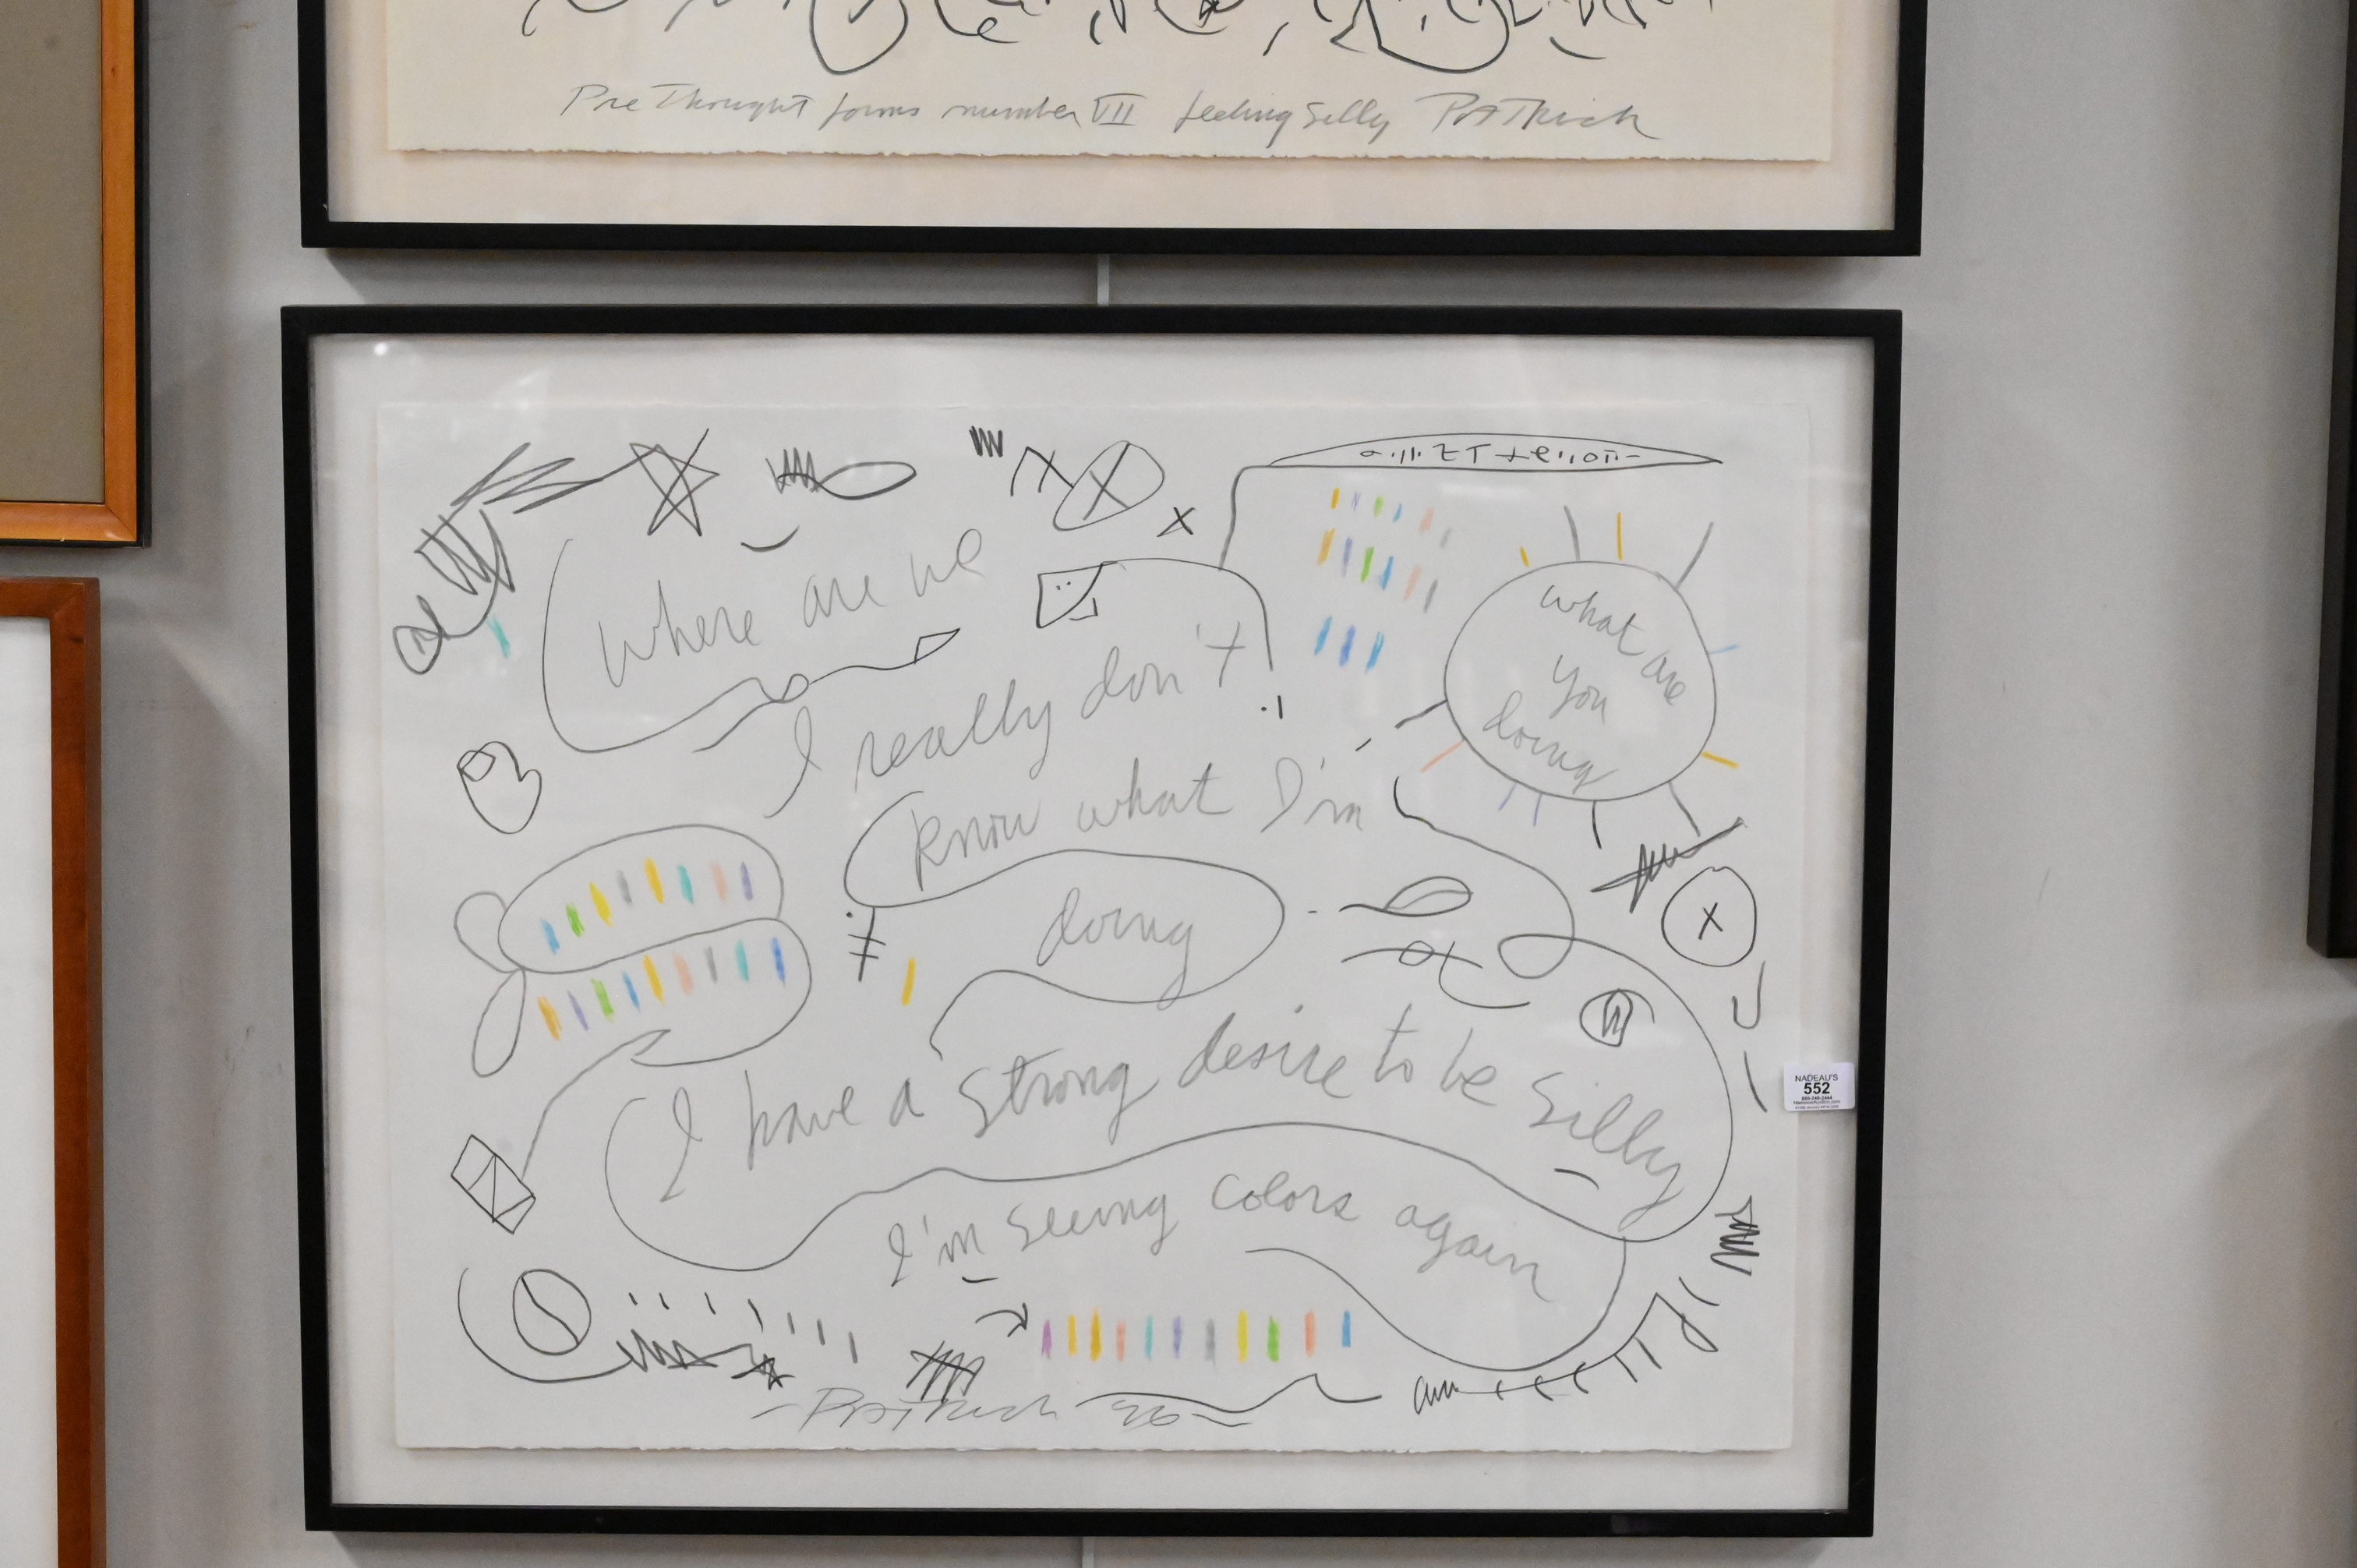 Pre Thought forms number VII feeling Silly PATRick
where are we
what are
you
doing
I really don't
know what I'm
doing
I have a strong desire to be silly
I'm seeing colors again
NADEAU'S
552
PATRick 96